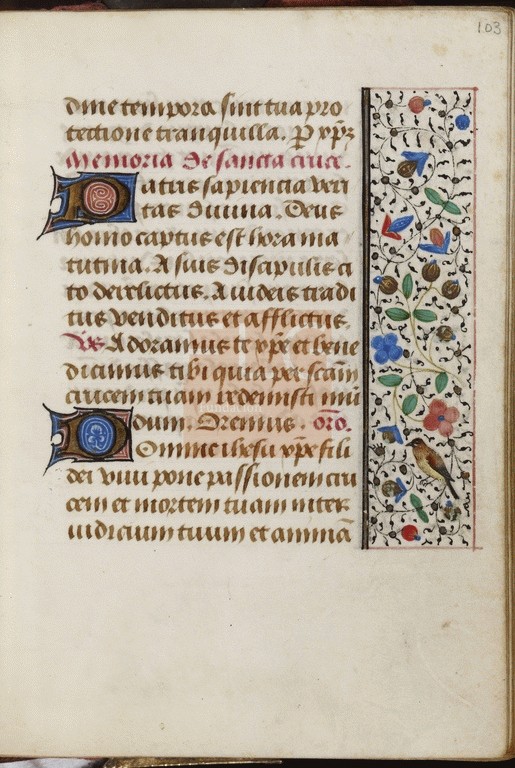 103
dine tempora sint tua pro
tectione tranquilla. P xp̄ꝫ
Memoria de sancta cruce.
Patris sapiencia veri
tas divina. Deus
homo captus est hora ma
tutina. A suis discipulis ci
to derelictus. A iudeis tradi
tus venditus et afflictus.
Vs. Adoramus te xp̄e et bene
dicimus tibi quia per sc̄am
crucem tuam redemisti mū
dum. Oremus. Oro.
Domine ihesu xp̄e fili
dei vivi pone passionem cru
cem et mortem tuam inter
iudicium tuum et animā
fundación